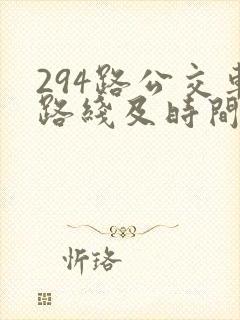 294路公交車
路綫及時間
忻珞